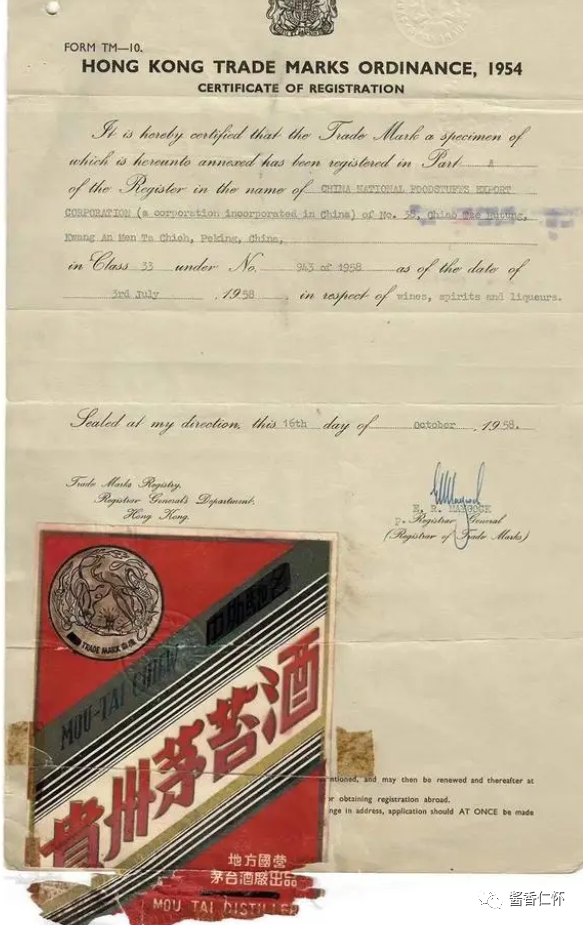 FORM TM—10.
HONG KONG TRADE MARKS ORDINANCE, 1954
CERTIFICATE OF REGISTRATION
It is hereby certified that the Trade Mark a specimen of
which is hereunto annexed has been registered in Part A
of the Register in the name of CHINA NATIONAL FOODSTUFFS EXPORT
CORPORATION (a corporation incorporated in China) of No.
Kwang An Men Ta Chieh, Peking, China,
in Class 33 under No. 943 of 1958 as of the date of
3rd July, 1958 in respect of wines, spirits and liqueurs.
Sealed at my direction, this 16th day of October, 1958.
Trade Marks Registry,
Registrar General's Department,
Hong Kong.
p. Registrar General
(Registrar of Trade Marks)
TRADE MARK
MOU-TAI
貴州茅苔酒
地方國營
茅台酒厰出品
MOU TAI DISTILLER
and may then be renewed and thereafter at
obtaining registration abroad.
in address, application should AT ONCE be made
酱香仁怀